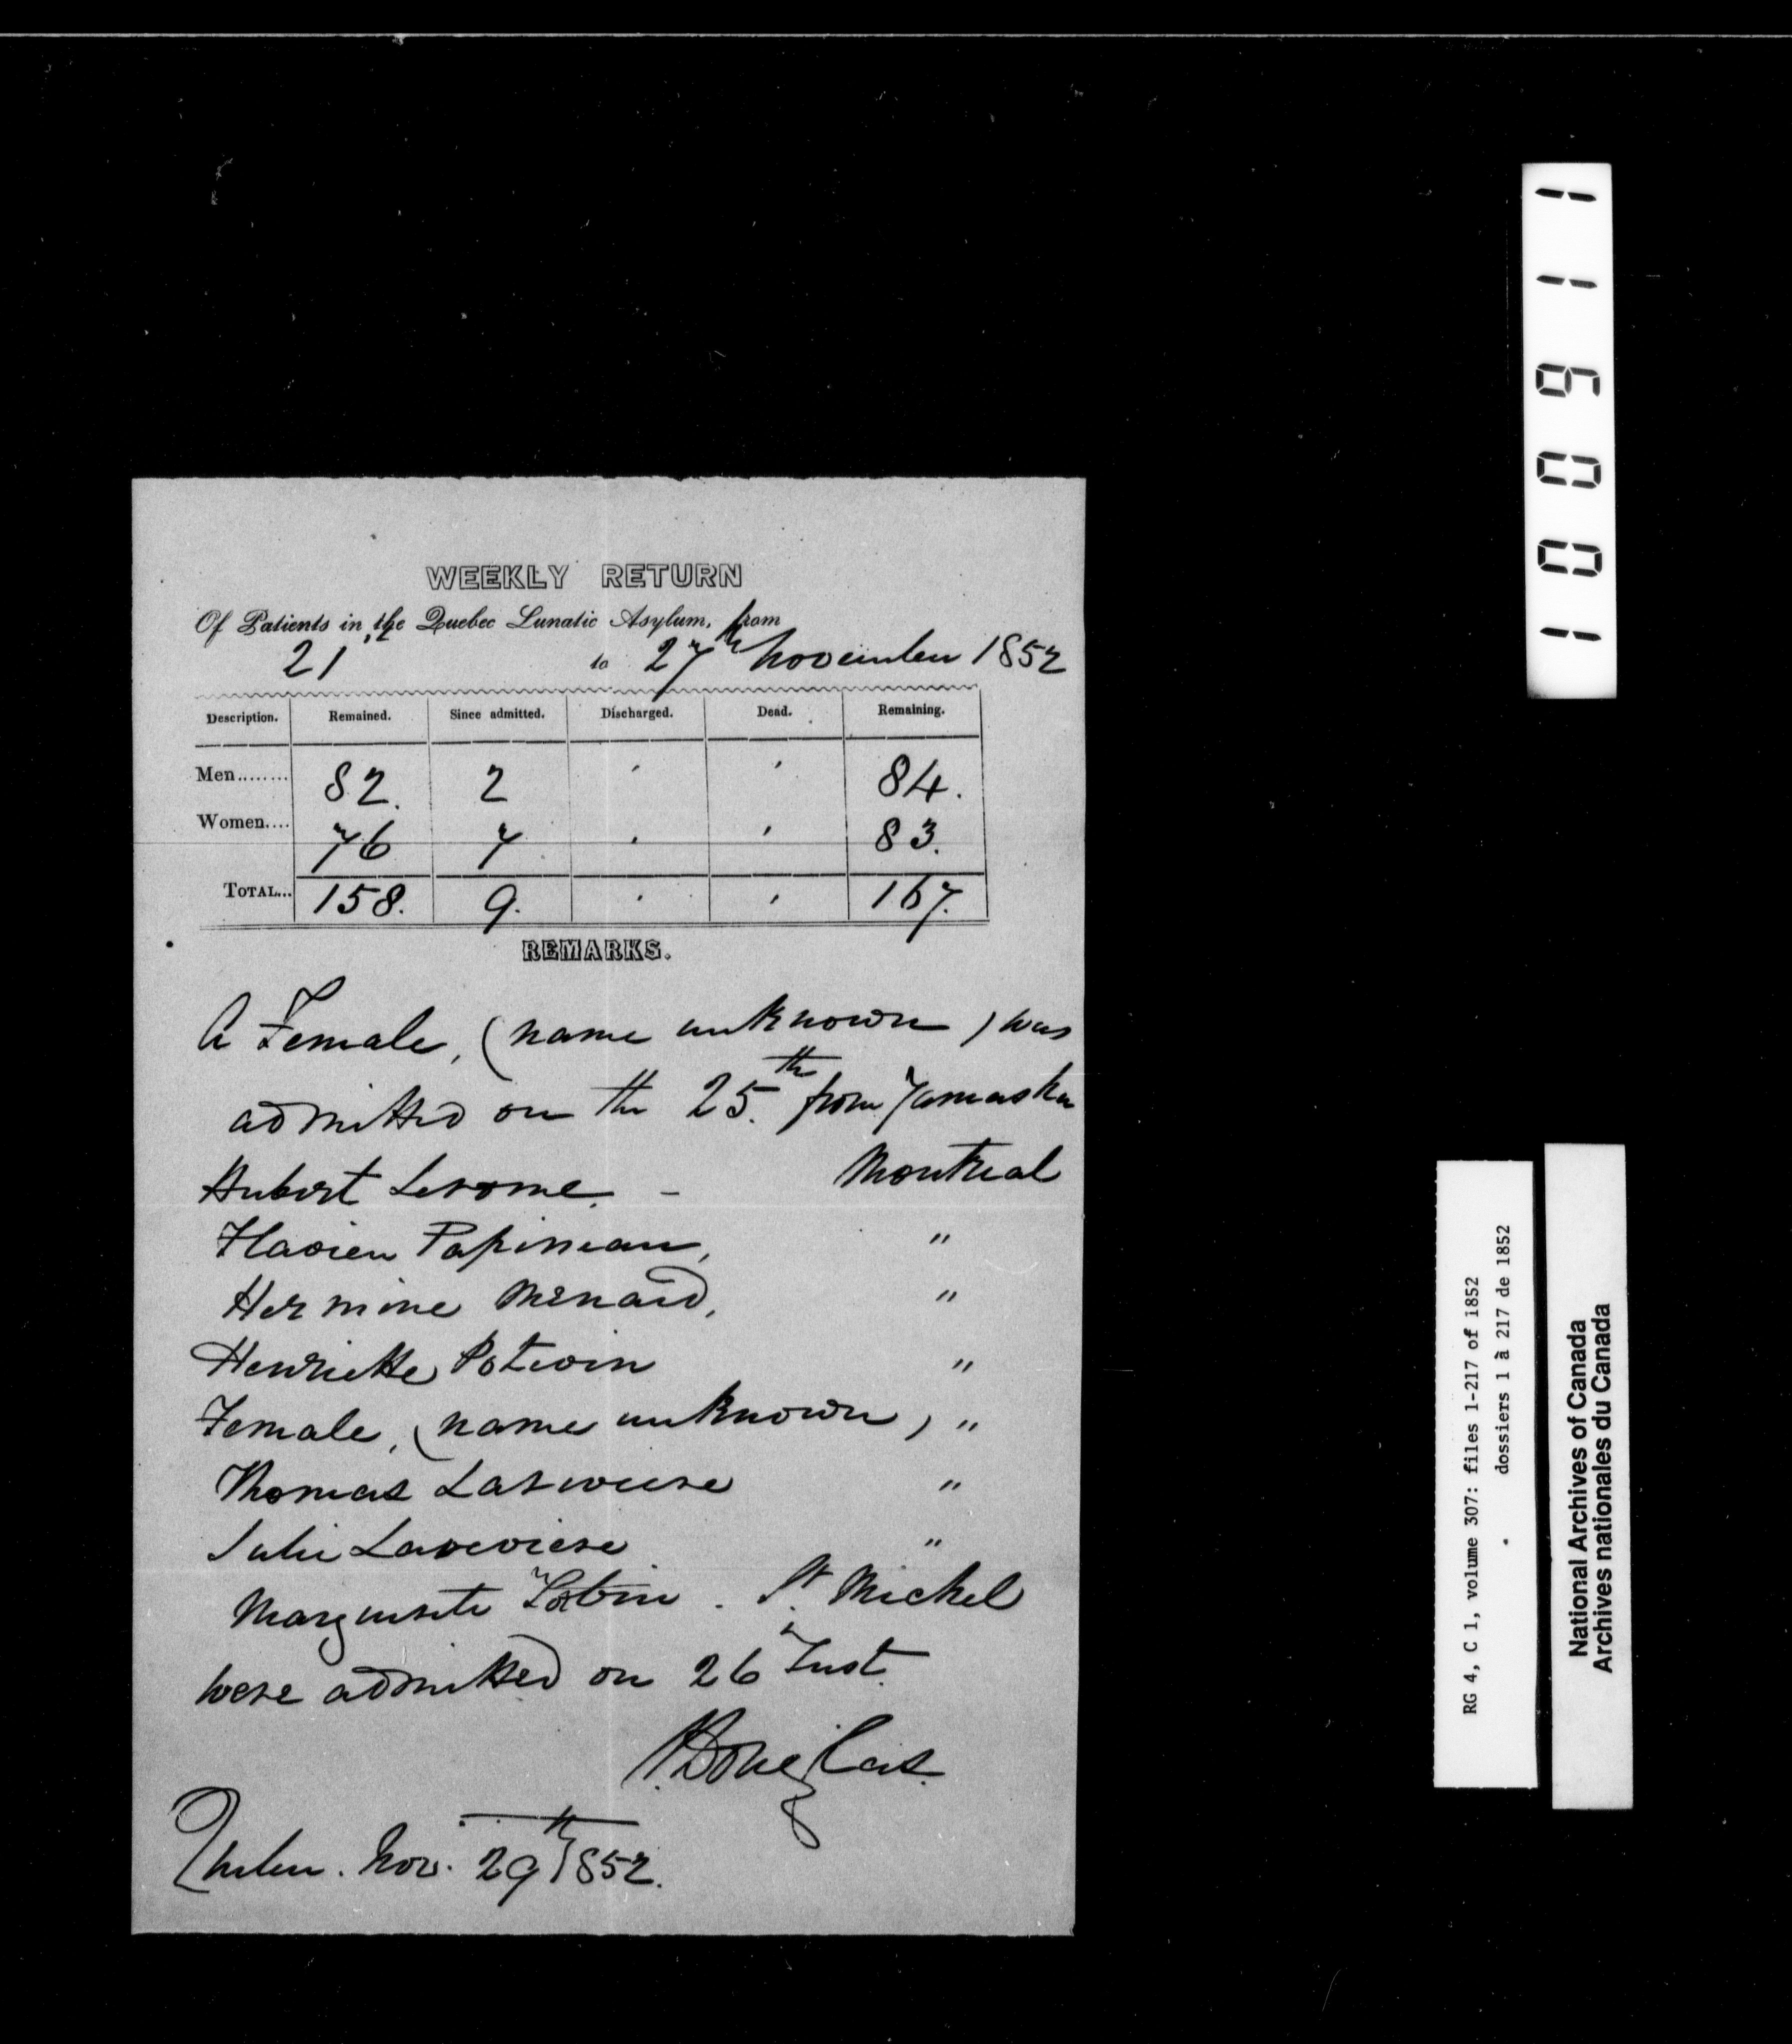 WEEKLY RETURN
Of Patients in the Quebec Lunatic Asylum, from
21 to 27th November 1852
Description. Remained. Since admitted. Discharged. Dead. Remaining.
Men........ 82. 2 ' ' 84.
Women.... 76 7 . ' 83.
TOTAL... 158. 9. ' ' 167.
REMARKS.
A Female, (name unknown) was
admitted on the 25.th from Yamaska
Hubert Lerome. - Montreal
Flavien Papineau, "
Hermine Menard, "
Henriette Potevin "
Female, (name unknown) "
Thomas "
Julie "
Marguerite Tobin. St. Michel
were admitted on 26 Inst.
J. Douglas.
Quebec. Nov. 29th 1852.
100911
RG 4, C 1, volume 307: files 1-217 of 1852
dossiers 1 à 217 de 1852
National Archives of Canada
Archives nationales du Canada